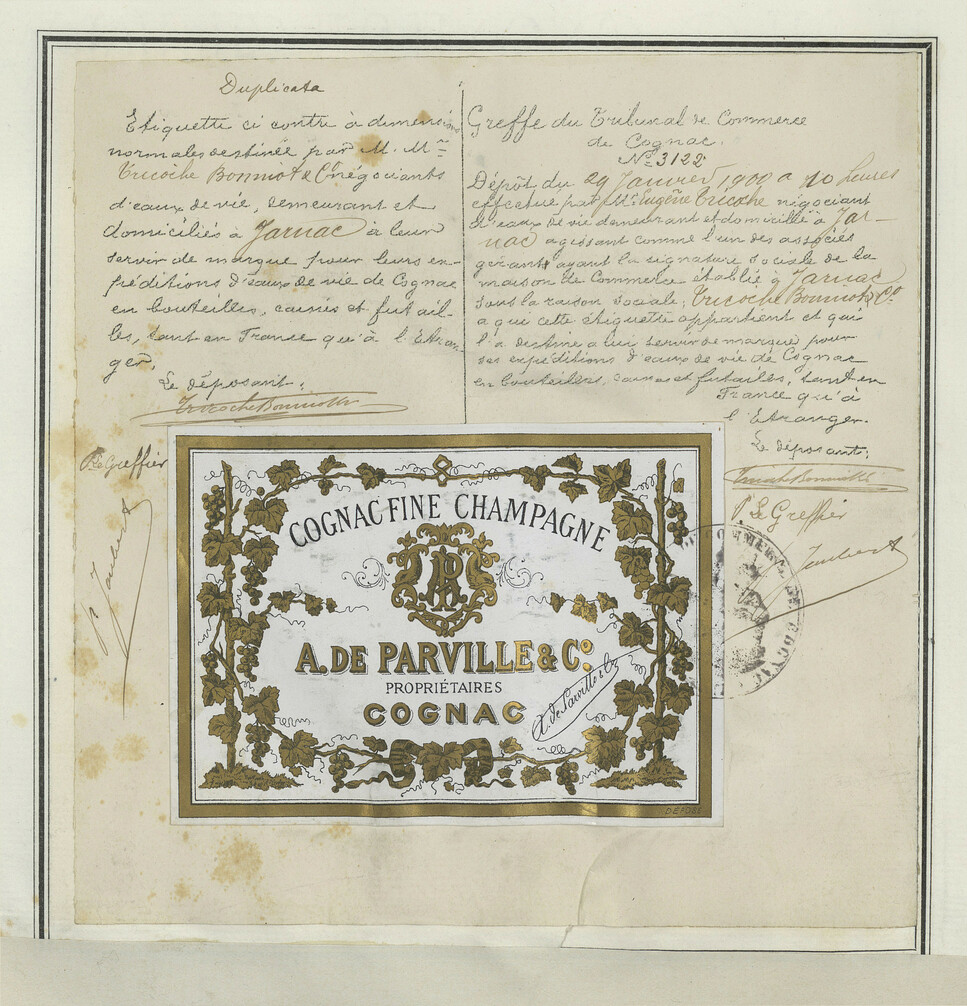 Duplicata
Etiquette ci contre à dimensions
normales destinée par M. M.rs
Tricoche Bonniot & Co négociants
d'eaux de vie, demeurant et
domiciliés à Jarnac à leur
servir de marque pour leurs ex-
péditions d'eaux de vie de Cognac
en bouteilles, caisses et futail-
les, tant en France qu'à l'Etran-
ger.
Le déposant:
Tricoche Bonniot & Co
P. Le Greffier
Jaubert
Greffe du Tribunal de Commerce
de Cognac.
No 3122
Dépôt du 29 Janvier 1900 à 10 heures
effectué par Mr Eugène Tricoche négociant
d'eaux de vie demeurant et domicilié à Jar-
nac agissant comme l'un des associés
gérants ayant la signature sociale de la
maison de Commerce établie à Jarnac
sous la raison sociale, Tricoche Bonniot & Co
a qui cette étiquette appartient et qui
l'a destine a lui servir de marque pour
ses expéditions d'eaux de vie de Cognac
en bouteilles, caisses et futailles, tant en
France qu'à
l'Etranger.
Le déposant:
Tricoche Bonniot & Co
P. Le Greffier
Jaubert
COGNAC FINE CHAMPAGNE
A. DE PARVILLE & Co.
PROPRIÉTAIRES
COGNAC
A. de Parville & Co
DE COMMERCE DE COGNAC